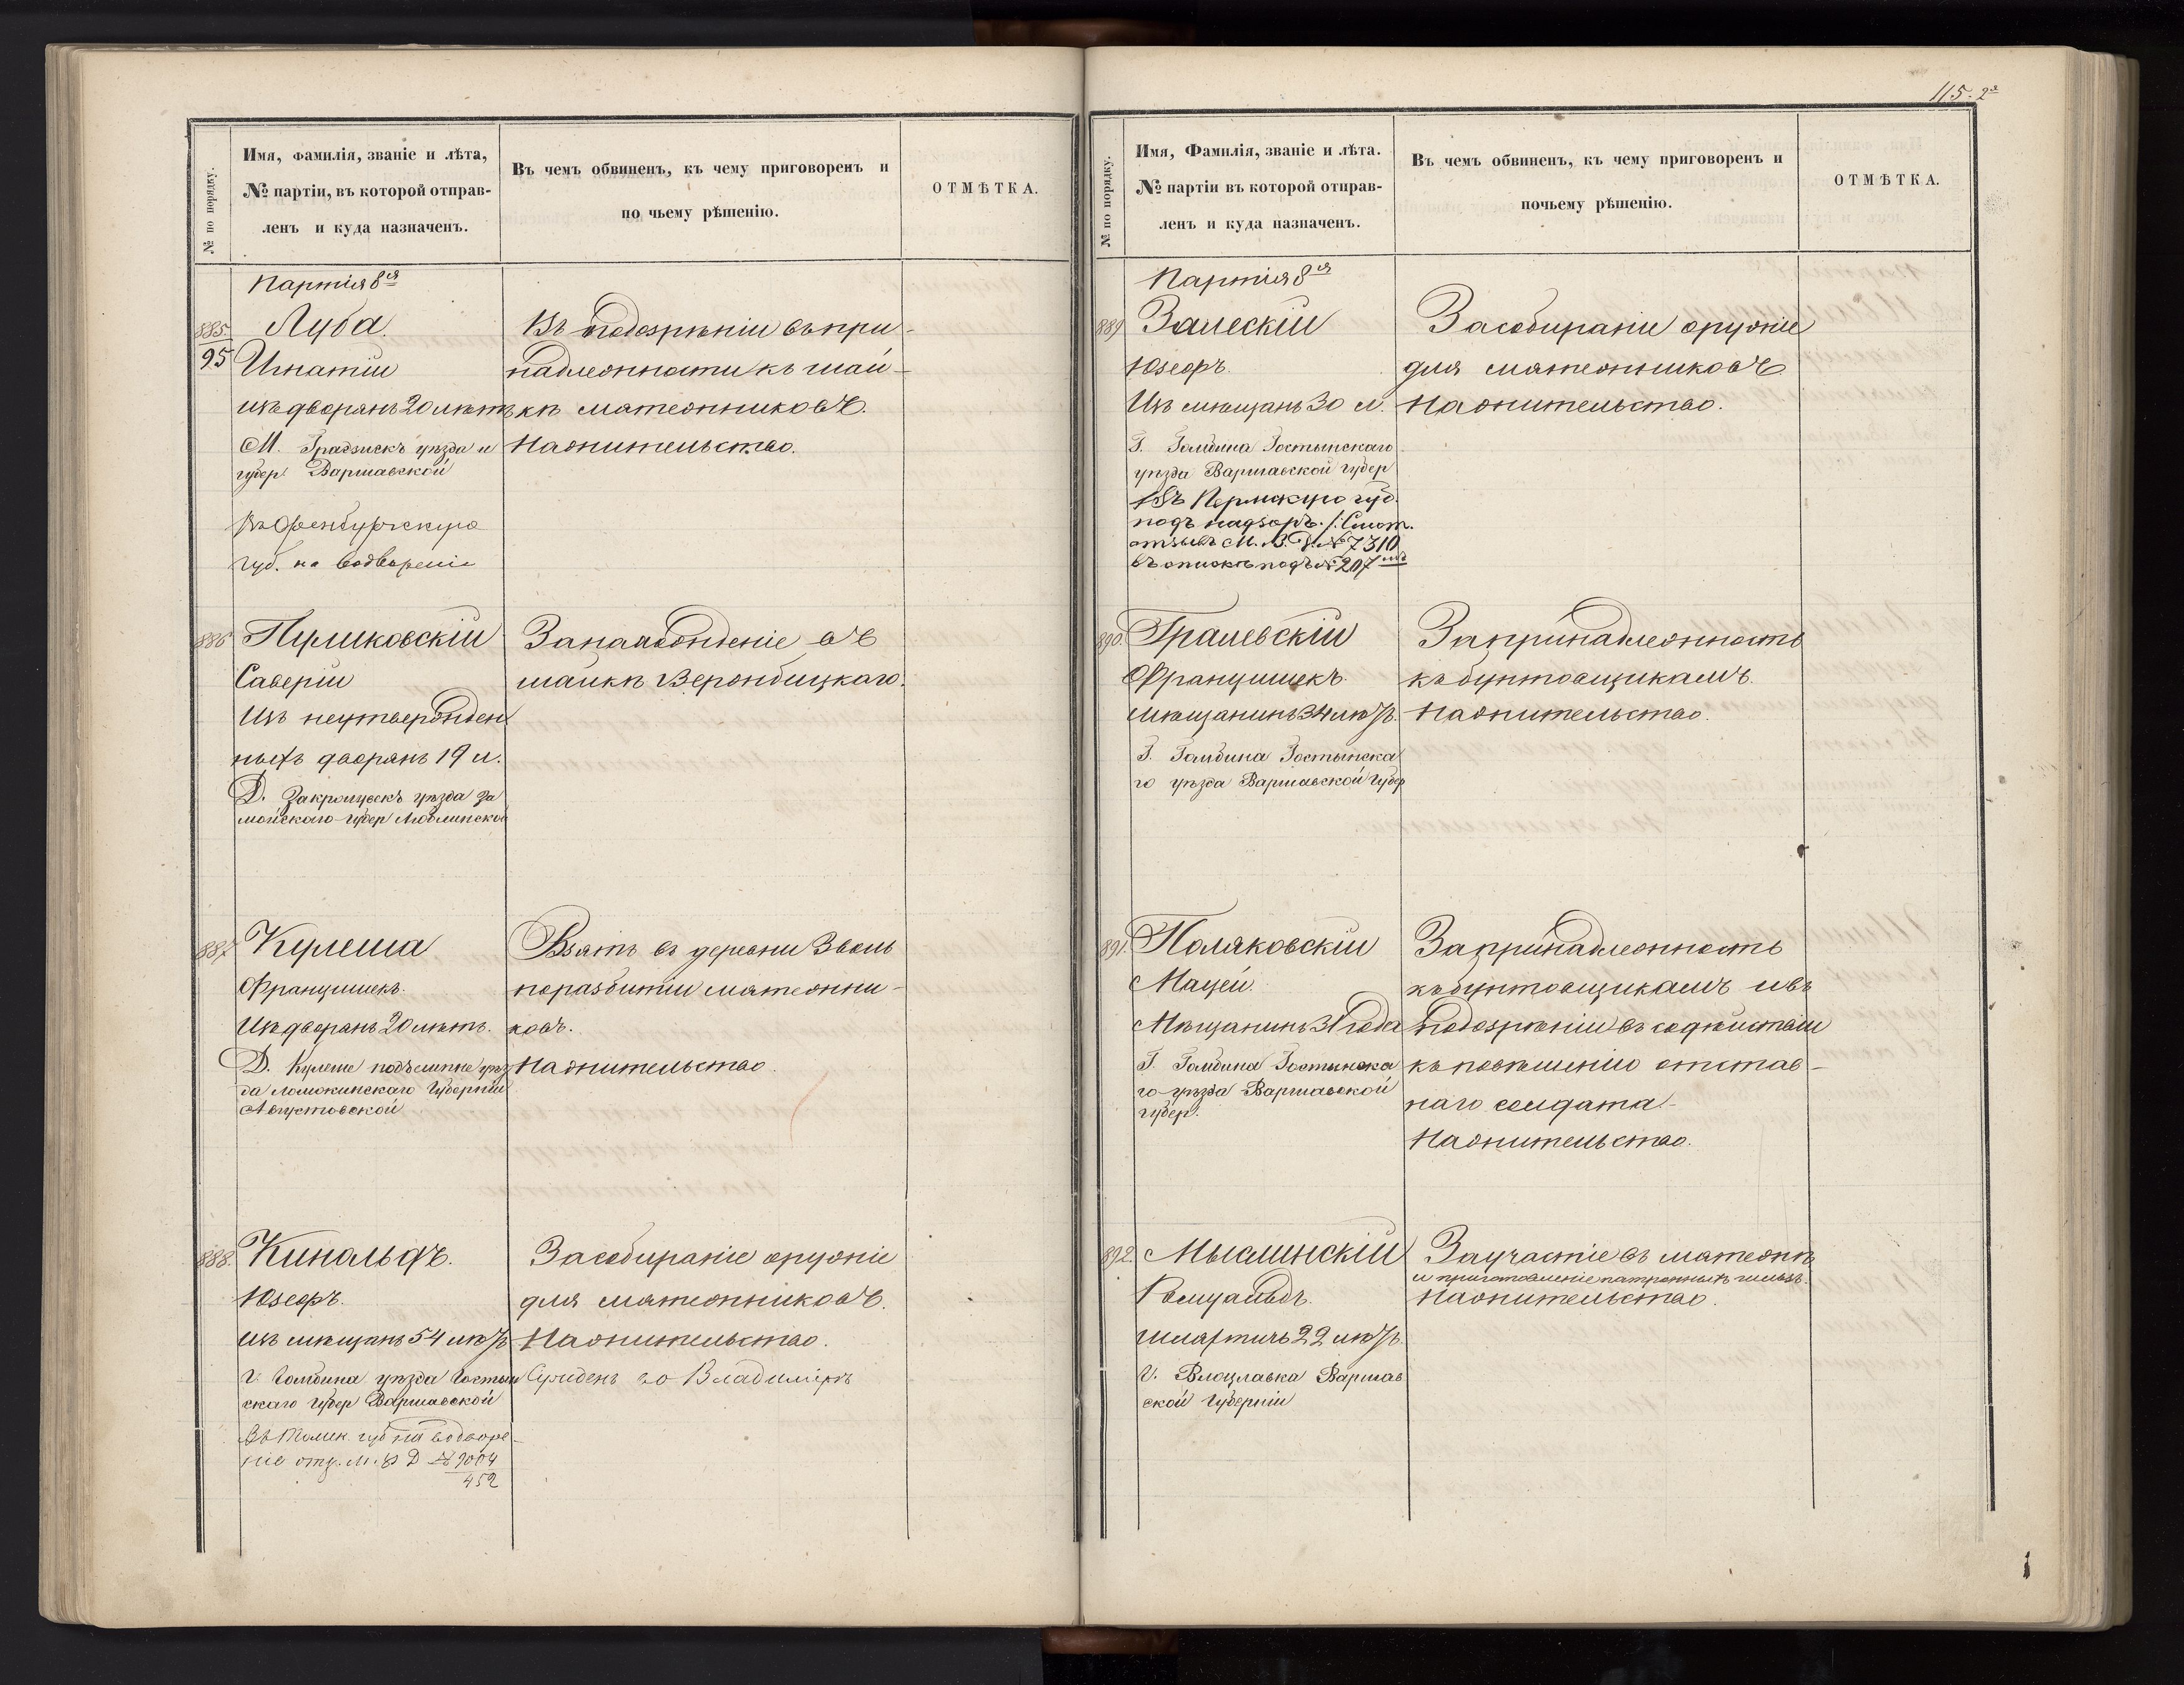 115. 2я
№ по порядку.
Имя, фамилія, званіе и лѣта,
№ партіи, въ которой отправ-
ленъ и куда назначенъ.
Въ чемъ обвиненъ, къ чему приговоренъ и
по чьему рѣшенію.
ОТМѢТКА.
Партія 8ая
885.
95
Луба
Игнатій
изъ дворянъ 20 лѣтъ
М. Градзискъ уѣзда и
губер. Варшавской
Въ Оренбургскую
губ. на водвореніе
Въ подозрѣніи въ при-
надлежности къ шай-
кѣ мятежниковъ.
На жительство.
886
Пуликовскій
Саверій
Изъ неутвержден
ныхъ дворянъ 19 л.
Д. Закромувекъ уѣзда За
мойскаго губер Люблинской
За нахожденіе въ
шайкѣ Вержбицкаго.
887.
Кулеша
Францишекъ.
Изъ дворянъ 20 лѣтъ.
Д. Кулеше уѣз
да Ломжинскаго Губерніи
Августовской
Взятъ въ деревни Зволь
по разбитіи мятежни-
ковъ.
На жительство.
888.
Кинальдъ.
Юзефъ.
изъ мѣщанъ 54 лѣтъ
г. Гомбина уѣзда Гостын
скаго губер Варшавской
Въ Томск. губ на водворе-
ніе отз. М. В Д № 9004
452
За собираніе оружіе
для мятежниковъ.
На жительство.
Сужденъ во Владимірѣ
№ по порядку.
Имя, Фамилія, званіе и лѣта.
№ партіи въ которой отправ-
ленъ и куда назначенъ.
Въ чемъ обвиненъ, къ чему приговоренъ и
почьему рѣшенію.
ОТМѢТКА.
Партія 8ая
889
Залескій
Юзефъ.
Изъ мѣщанъ 30 л.
Г. Гомбина Гостынскаго
уѣзда Варшавской губер
Въ Пермскую губ.
подъ надзоръ. /: Смот.
отзывъ М. В. Д. № 7310
въ спискѣ подъ № 207мъ
За собираніи оружіе
для мятежниковъ
На жительство.
890.
Граlевскій
Францишекъ.
мѣщанинъ 34 лѣтъ.
Г. Гомбина Гостынска
го уѣзда Варшавской Губер
За принадлежность
къ бунтовщикамъ.
На жительство.
891.
Поляковскій
Мацей.
Мѣщанинъ 31 года
Г. Гомбина Гостынска
го уѣзда Варшавской
губер.
За принадлежность
къ бунтовщикамъ и въ
подозрѣніи въ содѣйствіи
къ повѣшенію отстав-
наго солдата.
На жительство.
892.
Мыслинскій
Ромуальдъ.
шляхтичъ 22 лѣтъ.
г. Влоцлавка Варшав
ской Губерніи
За участіе въ мятежѣ
и приготовленіе патронныхъ гильзъ.
На жительство.